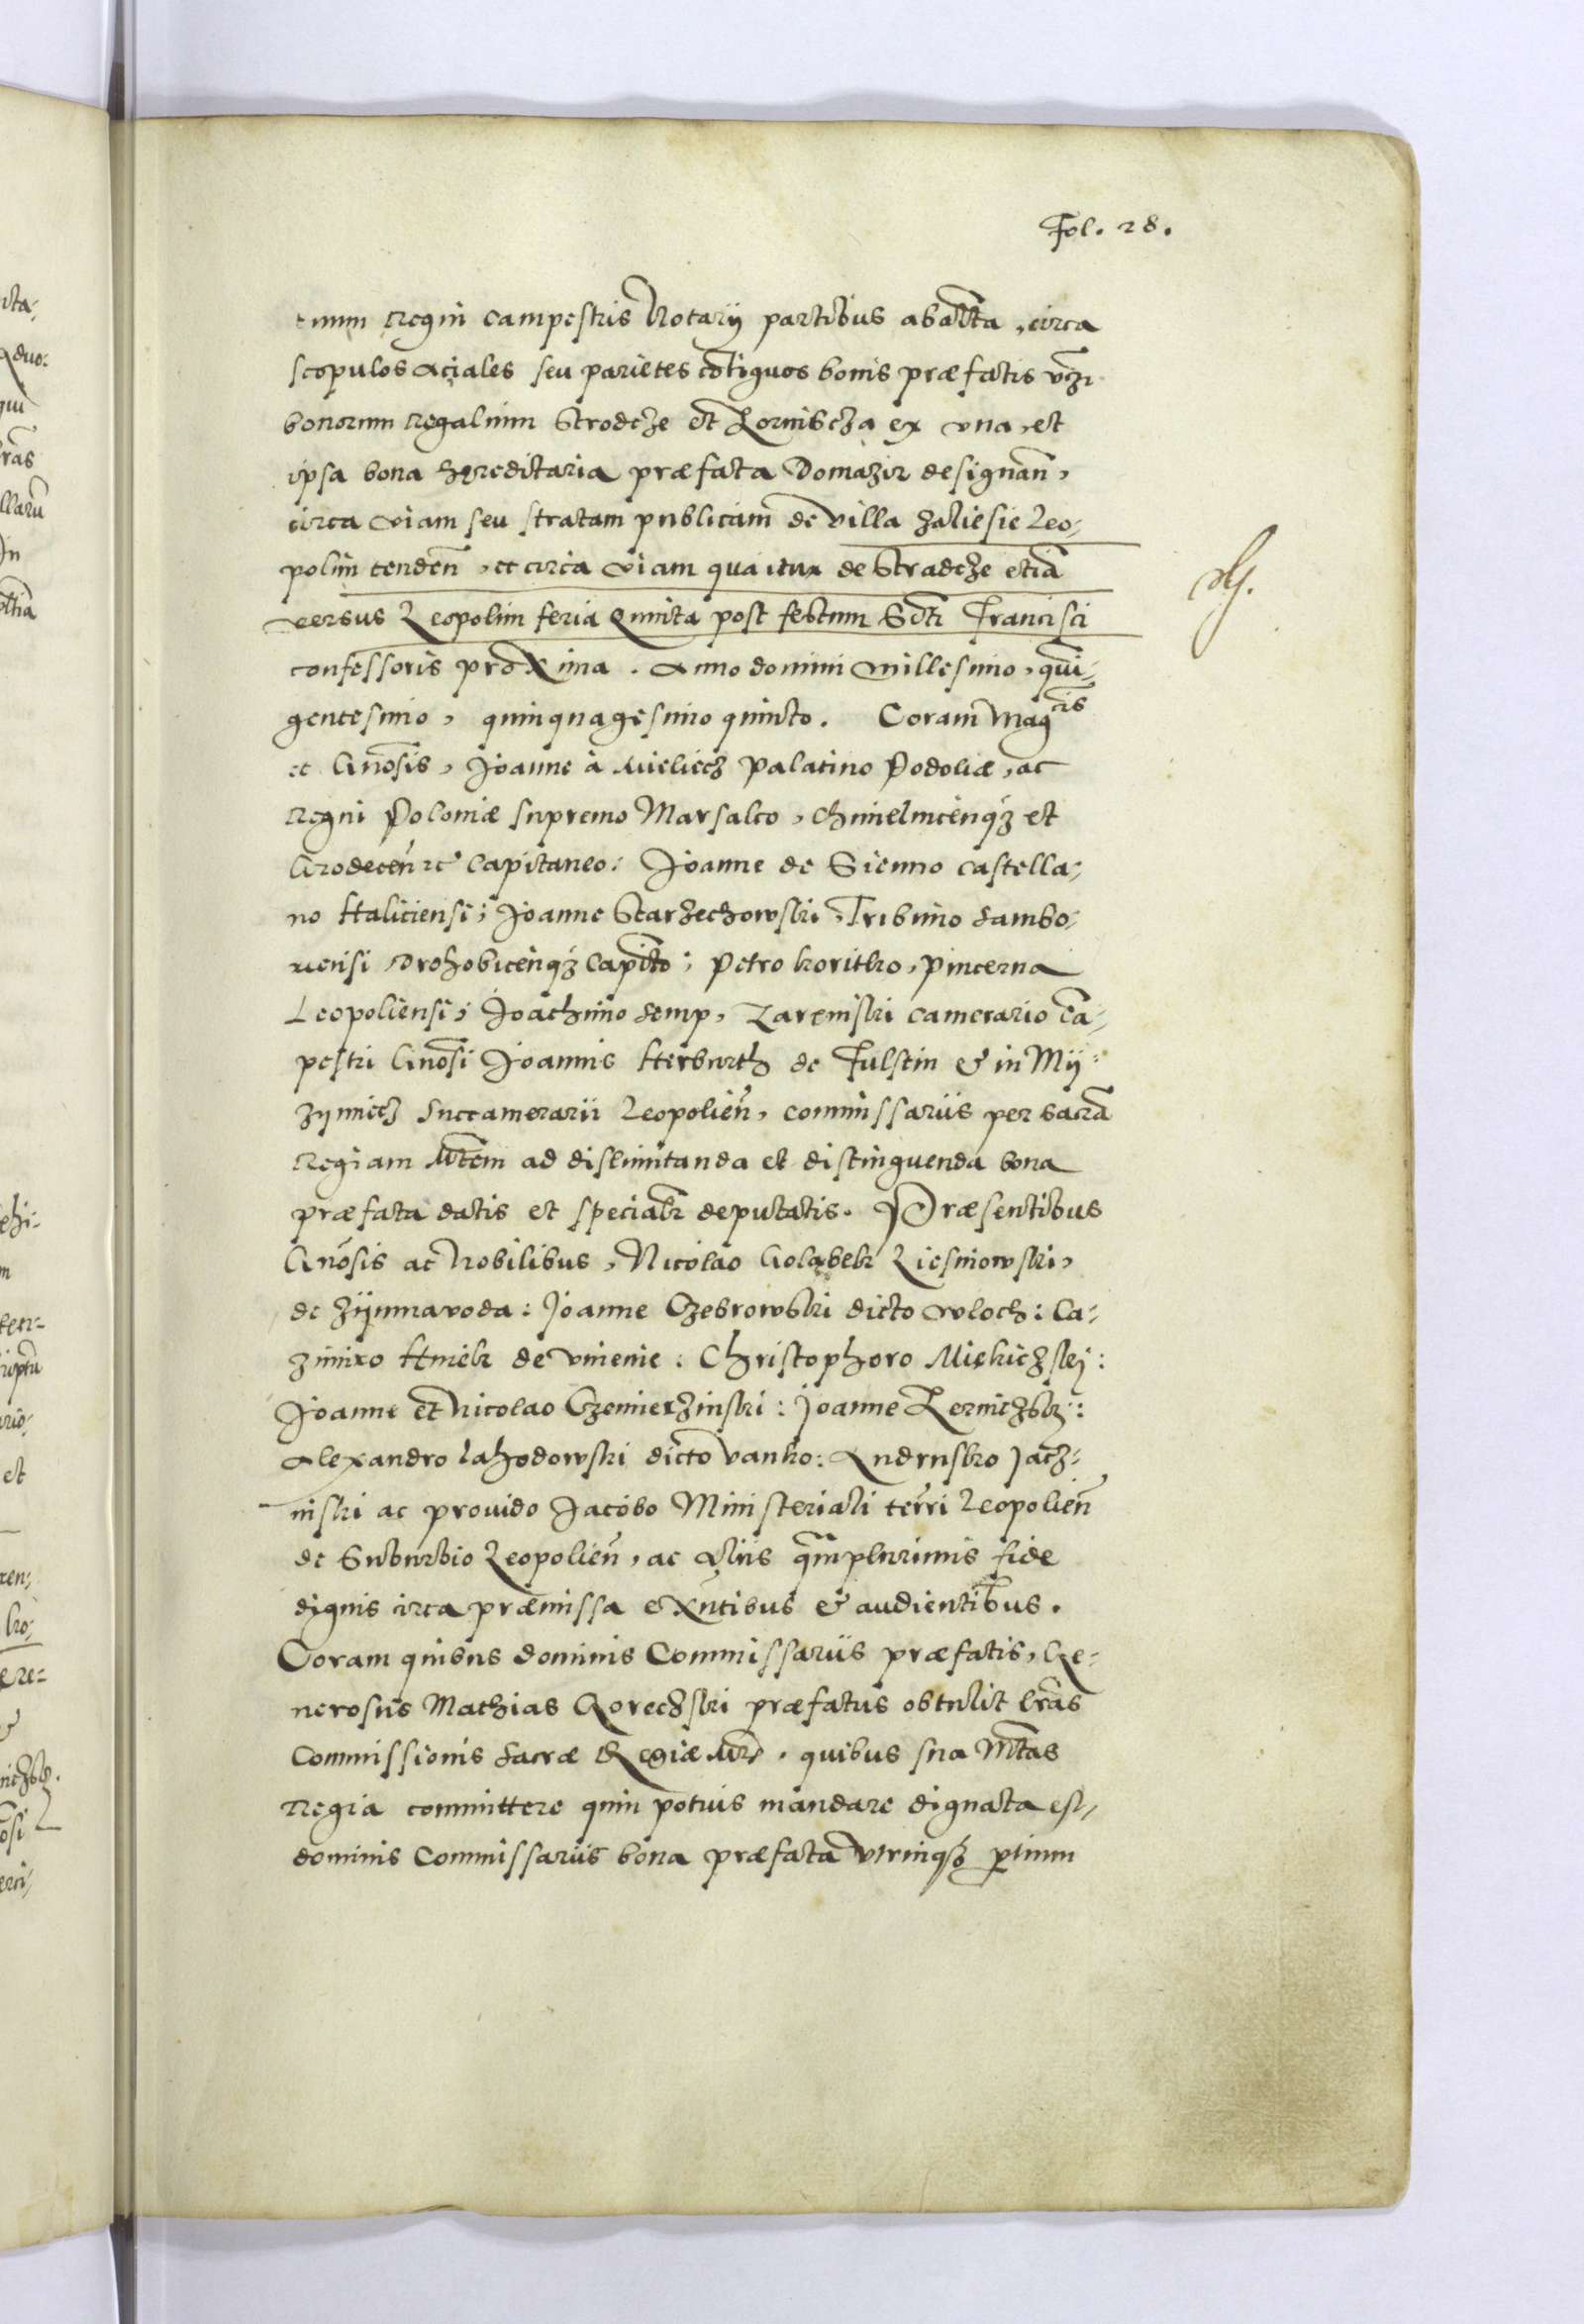 Fol. 28.
Regni campestris Notarij partibus ab altera, circa
scopulos aciales seu parietes cōtiguos bonis præfatis vz.
bonorum regalium Strodcze et Lozniscza ex vna, et
ipsa bona hęreditaria præfata Domazir designan̄,
circa viam seu stratam publicam de villa Zaliesie Leo-
polim tenden̄, et circa viam qua itur de Stradcze etiā
versus Leopolim feria Quinta post festum Scti Francisci
confessoris proxima. Anno domini Millesimo, quin-
gentesimo, quinquagesimo quinto. Coram Mag̃cis
et Gñosis, Joanne à Mieliecz Palatino Podoliæ, ac
Regni Poloniæ supremo Marsalco, Chmielnicenq3 et
Grodecen̄ rc̄ Capitaneo: Joanne de Sienno Castella-
no Haliciensi; Joanne Starzechowski, Tribuno Sambo-
riensi Drohobicenq3 Capitō; Petro koritko, Pincerna
Leopoliensi; Joachimo Semp, Zarenski camerario cā-
pestri Gñosi Joannis Herburth de Fulstin & in Mij-
zijniecz Succamerarii Leopolien̄, commissariis per sacrā
Regiam Mtem ad dislimitanda et distinguenda bona
præfata datis et specialr̄ deputatis. Præsentibus
Gñosis ac Nobilibus, Nicolao Goląbek Liesniowski,
de Zijmnavoda: Joanne Czebrowski dicto Wloch: Ca-
zimiro Hniek de vnienie: Christophoro Miekiczskj:
Joanne et Nicolao Czemierzinski: Joanne
Alexandro Lahodowski dicto vanko: Andrusko Jacz-
niski ac prouido Jacobo Ministeriali terri Leopolien̄
de Suburbio Leopolien̄, ac aliis quāmplurimis fide
dignis circa præmissa exn̄tibus & audientibus.
Coram quibus dominis Commissariis præfatis, Ge-
nerosus Mathias Gorechski præfatus obtulit lr̄as
Commissionis Sacræ Regiæ Mtis. quibus sua Mtas
Regia committere quin potius mandare dignata est
dominis Commissariis bona præfata vtrinq3 ꝑtium